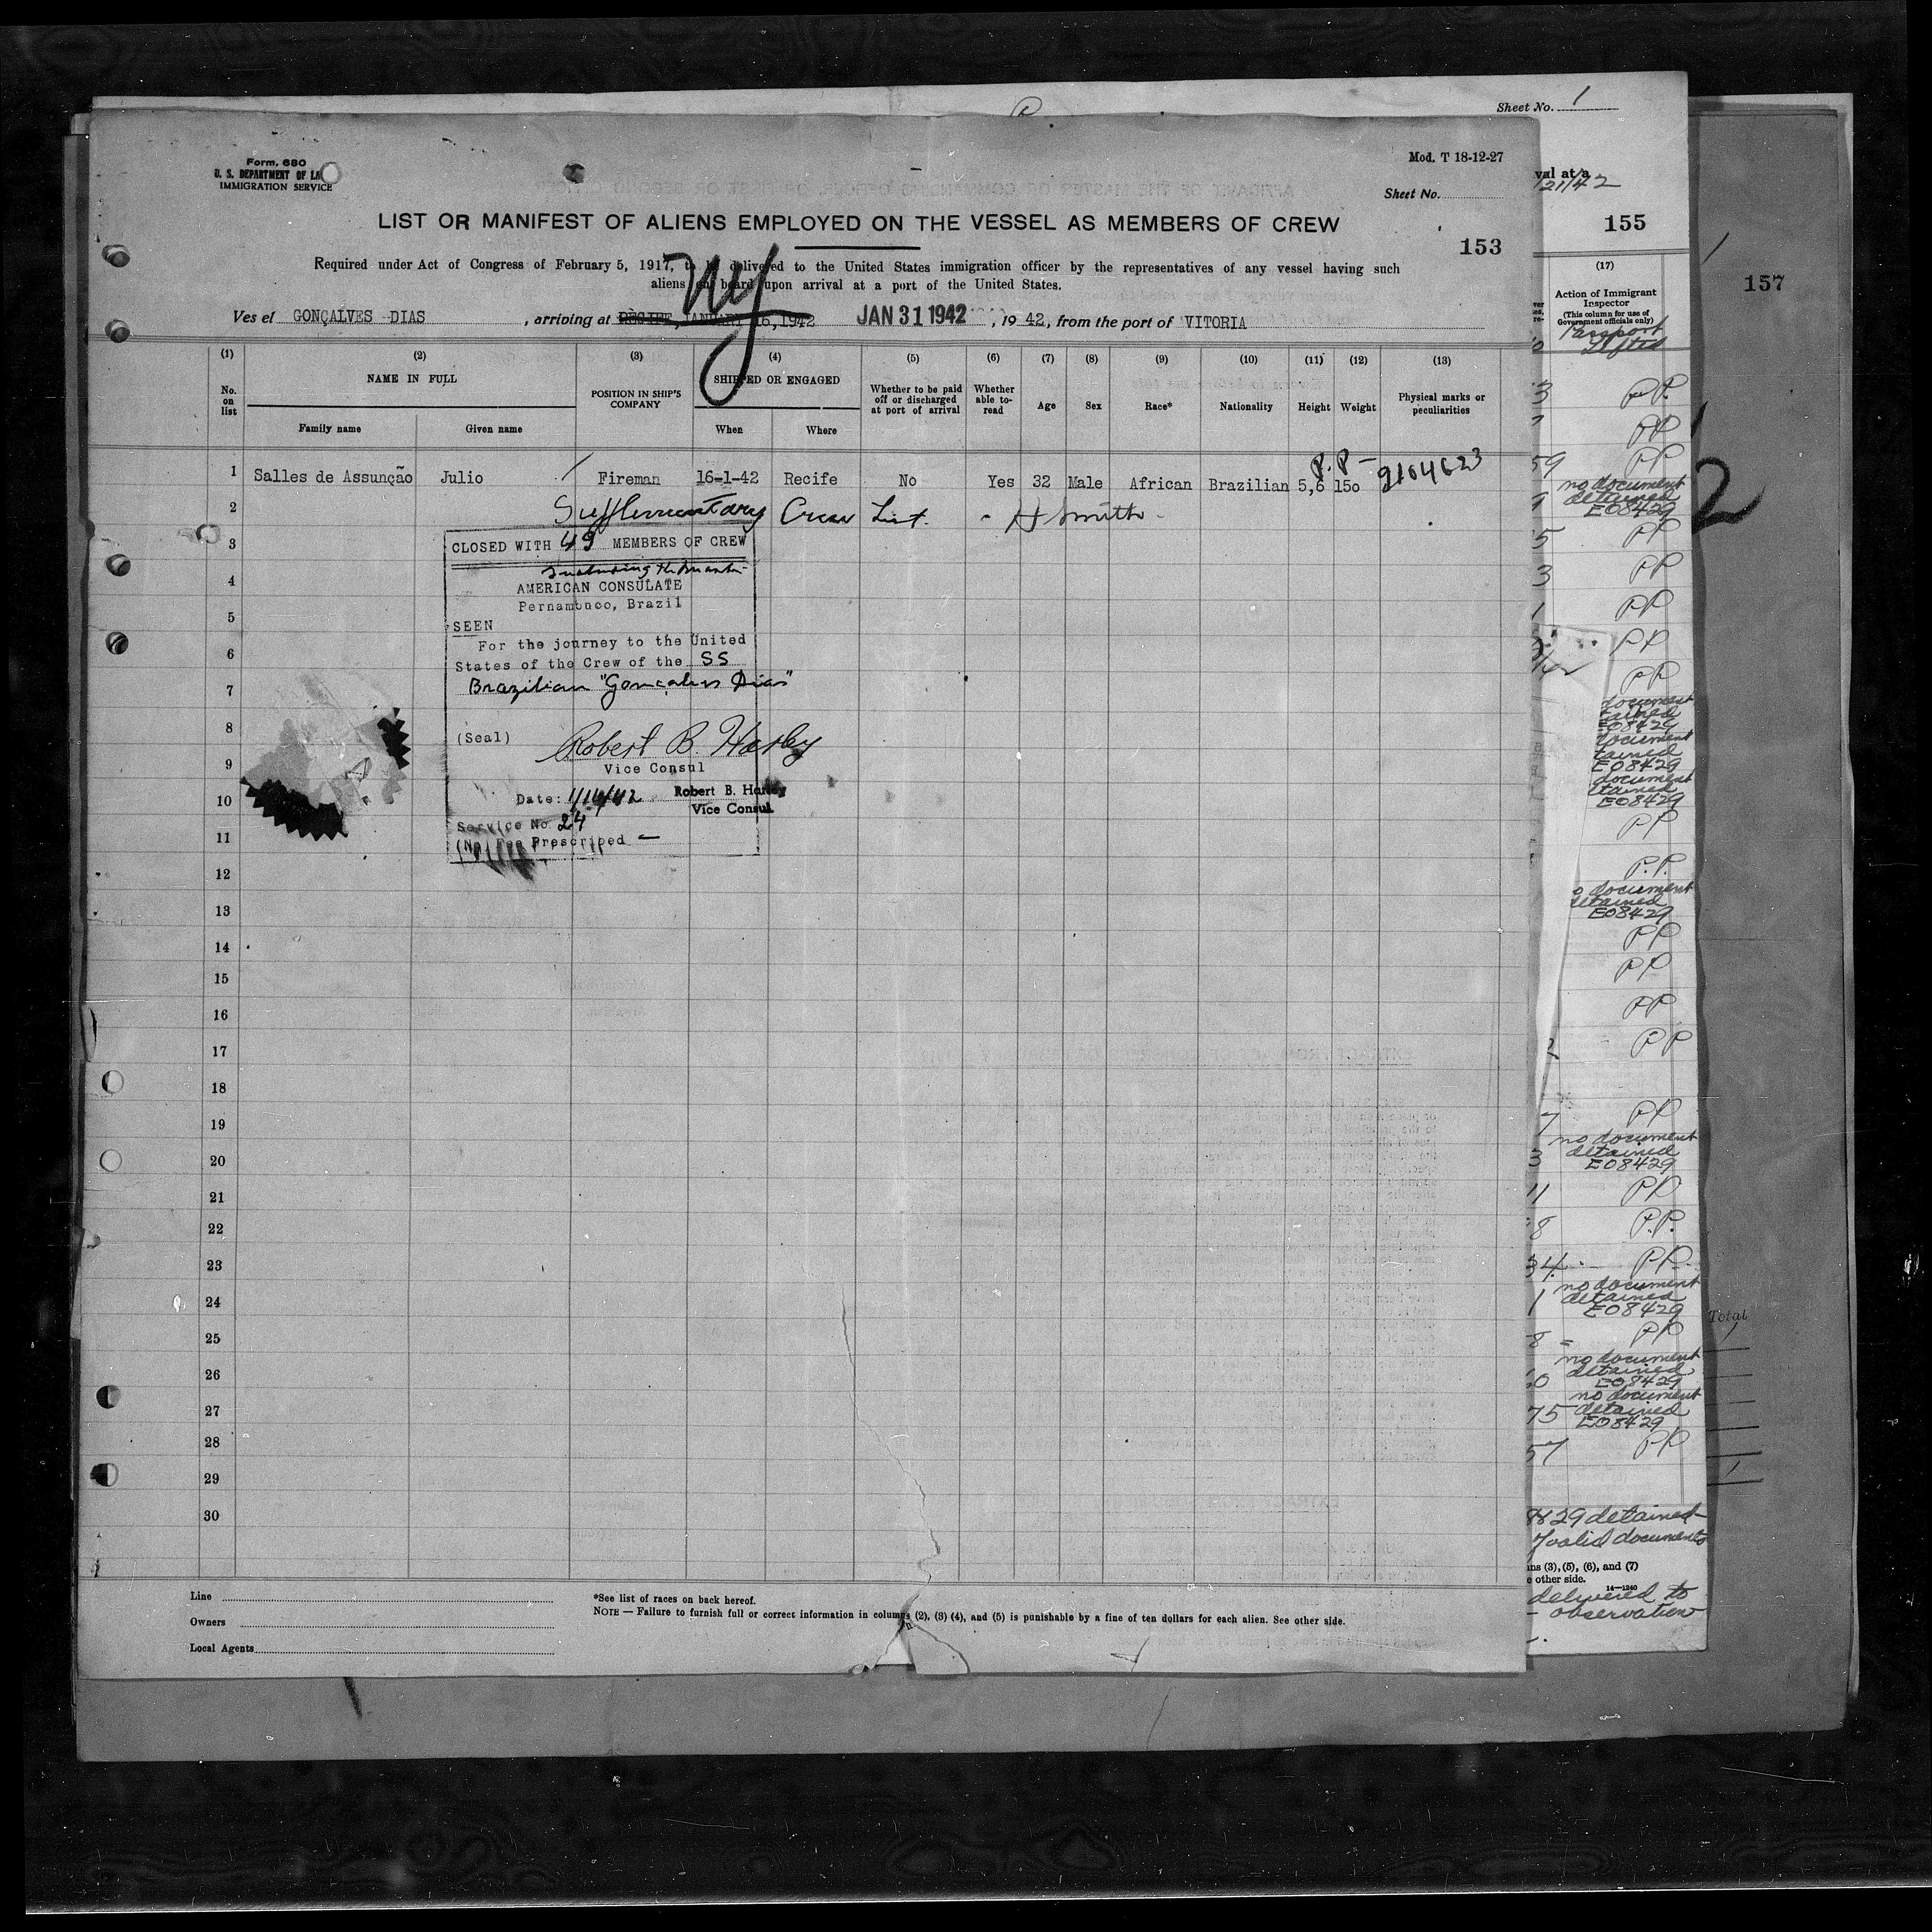 Sheet No. 1
Form. 680
U. S. DEPARTMENT OF LA
IMMIGRATION SERVICE
Mod. T 18-12-27
Sheet No.
LIST OR MANIFEST OF ALIENS EMPLOYED ON THE VESSEL AS MEMBERS OF CREW
153
Required under Act of Congress of February 5, 1917, to be delivered to the United States immigration officer by the representatives of any vessel having such
aliens on board upon arrival at a port of the United States.
NY
Ves el GONÇALVES DIAS, arriving at RECIFE, JANUARY 16, 1942 JAN 31 1942, 1942, from the port of VITORIA
(1) (2) (3) (4) (5) (6) (7) (8) (9) (10) (11) (12) (13)
No. on list
NAME IN FULL
Family name
Given name
POSITION IN SHIP'S COMPANY
SHIPPED OR ENGAGED
When
Where
Whether to be paid off or discharged at port of arrival
Whether able to read
Age
Sex
Race*
Nationality
Height
Weight
Physical marks or peculiarities
P.P-
1 Salles de Assunção Julio / Fireman 16-1-42 Recife No Yes 32 Male African Brazilian 5,6 150 9104623
2 Supplementary Crew List. - H Smith -
3
4
5
6
7
8
9
10
11
12
13
14
15
16
17
18
19
20
21
22
23
24
25
26
27
28
29
30
CLOSED WITH 49 MEMBERS OF CREW
Including the master
AMERICAN CONSULATE
Pernambuco, Brazil
SEEN
For the journey to the United
States of the Crew of the SS
Brazilian "Goncalves Dias"
(Seal)
Robert B. Harley
Vice Consul
Date: 1/16/42
Robert B. Harley
Vice Consul
Service No. 24
(No) Fee Prescribed —
Line
Owners
Local Agents
*See list of races on back hereof.
NOTE — Failure to furnish full or correct information in columns (2), (3) (4), and (5) is punishable by a fine of ten dollars for each alien. See other side.
val at a
/21/42
155
(17)
Action of Immigrant
Inspector
(This column for use of
Government officials only)
Passport
Lifted
PP.
PP
PP
no document
detained
E08429
PP
PP
PP
PP
PP
document
tained
E08429
document
tained
E08429
document
etained
E08429
PP
P.P.
o document
detained
E08429
PP
PP
PP
PP
PP
no document
detained
E08429
PP
P.P.
34. PP.
no document
detained
E08429
PP
no document
detained
E08429
no document
75 detained
E08429
57 PP
8429 detained
valid documents
ns (3), (5), (6), and (7)
e other side.
14—1240
delivered to
observation
157
2
Total